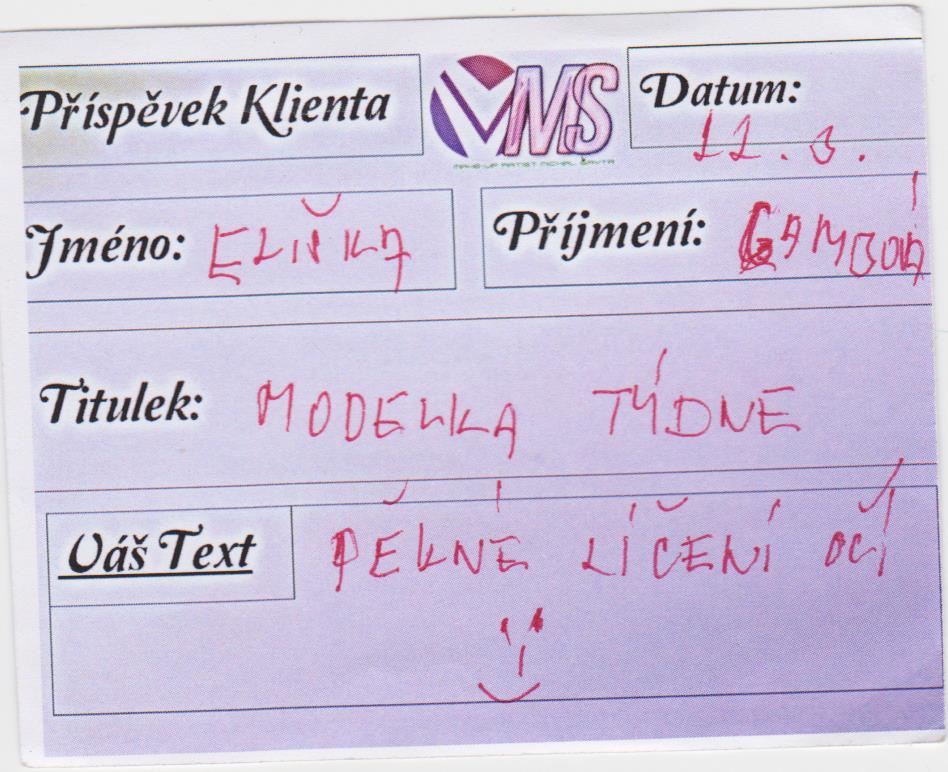 Příspěvek Klienta
MS
MAKE-UP ARTIST MICHAL ŠAVTA
Datum:
11. 3.
Jméno: ELIŠKA
Příjmení: GAMBOVÁ
Titulek: MODELKA TÝDNE
Váš Text
PĚKNÉ LÍČENÍ OČÍ